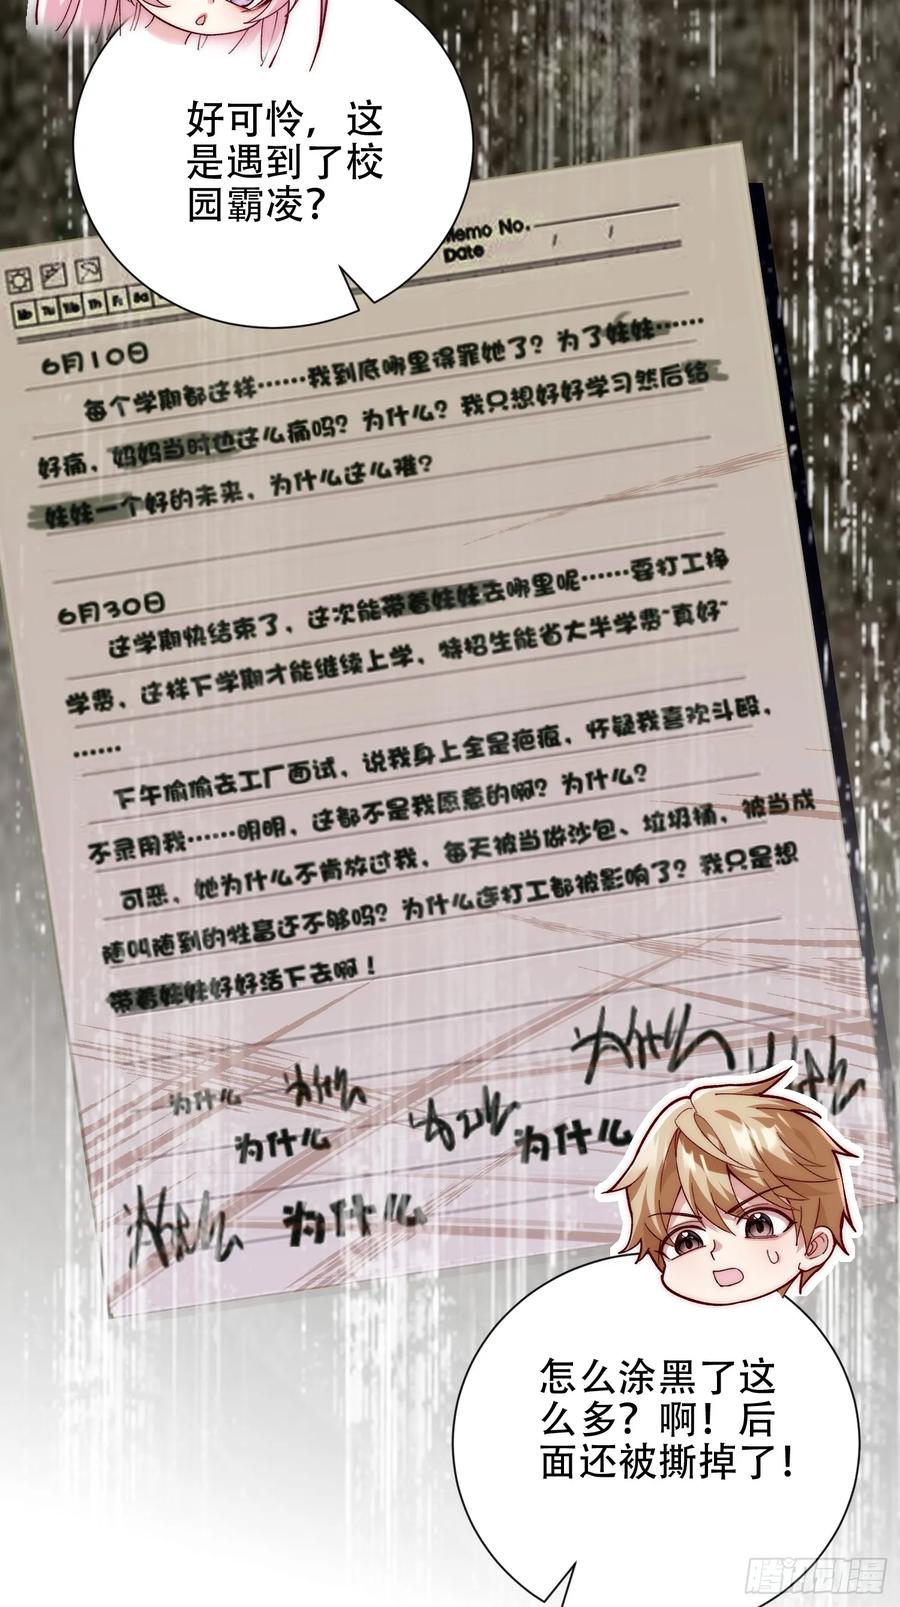 好可怜，这
是遇到了校
园霸凌？
Memo No.
Date / /
Mo Tu We Th Fr Sa
6月10日
每个学期都这样……我到底哪里得罪她了？为了妹妹……
好痛，妈妈当时也这么痛吗？为什么？我只想好好学习然后给
妹妹一个好的未来，为什么这么难？
6月30日
这学期快结束了，这次能带着妹妹去哪里呢……要打工挣
学费，这样下学期才能继续上学，特招生能省大半学费~真好~
……
下午偷偷去工厂面试，说我身上全是疤痕，怀疑我喜欢斗殴，
不录用我……明明，这都不是我愿意的啊？为什么？
可恶，她为什么不肯放过我，每天被当做沙包、垃圾桶，被当成
随叫随到的牲畜还不够吗？为什么连打工都被影响了？我只是想
带着妹妹好好活下去啊！
为什么
为什么
为什么
为什么
为什么
为什么
为什么
为什么
怎么涂黑了这
么多？啊！后
面还被撕掉了！
腾讯动漫